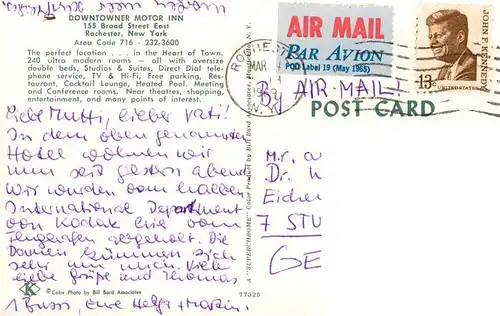 DOWNTOWNER MOTOR INN
155 Broad Street East
Rochester, New York
Area Code 716 - 232-3600
The perfect location . . . in the Heart of Town.
240 ultra modern rooms — all with oversize
double beds, Studios & Suites, Direct Dial tele-
phone service, TV & Hi-Fi, Free parking, Res-
taurant, Cocktail Lounge, Heated Pool. Meeting
and Conference rooms. Near theatres, shopping,
entertainment, and many points of interest.
Liebe Mutti, lieber Vati!
In dem oben genannten
Hotel wohnen wir
nun seit gestern abend
Wir wurden vom halben
International Department
von Kodak hier vom
Flughafen abgeholt. Die
Damen kümmern sich
sehr um mich. Viele
liebe Grüße und Thomas
1 Bussi, Eure Helga + Martin.
K
© Color Photo by Bill Bard Associates
77325
A "SUPERCHROME" Color Product by Bill Bard Associates, Monticello, N. Y.
AIR MAIL
PAR AVION
POD Label 19 (May 1965)
ROCHES
MAR
N. Y.
JOHN F. KENNEDY
13c
UNITED STATES
By AIR-MAIL!
POST CARD
Mr. a
Dr. h
Eichen
7 STU
GE